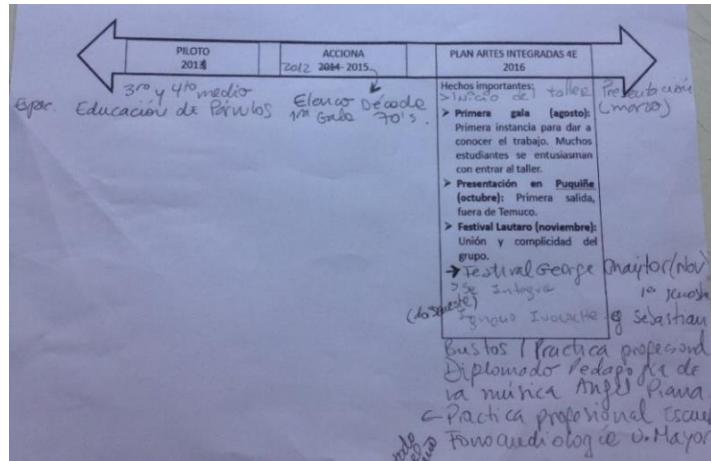 PILOTO
2011
ACCIONA
2012 2014-2015.
PLAN ARTES INTEGRADAS 4E
2016
3ro y 4to medio
Espec. Educación de Párvulos
Elenco Década
1ra Gala 70's.
Hechos importantes:
>Inicio del taller Presentación
(marzo)
➢ Primera gala (agosto):
Primera instancia para dar a
conocer el trabajo. Muchos
estudiantes se entusiasman
con entrar al taller.
➢ Presentación en Puquiñe
(octubre): Primera salida,
fuera de Temuco.
➢ Festival Lautaro (noviembre):
Unión y complicidad del
grupo.
→ Festival George (Nov)
> Se Integra
Sebastian
Bustos / Practica profesional
Diplomado Pedagogía de
la música Angel Piana.
Practica profesional Escuel
Fonoaudiología U. Mayor
todo
el